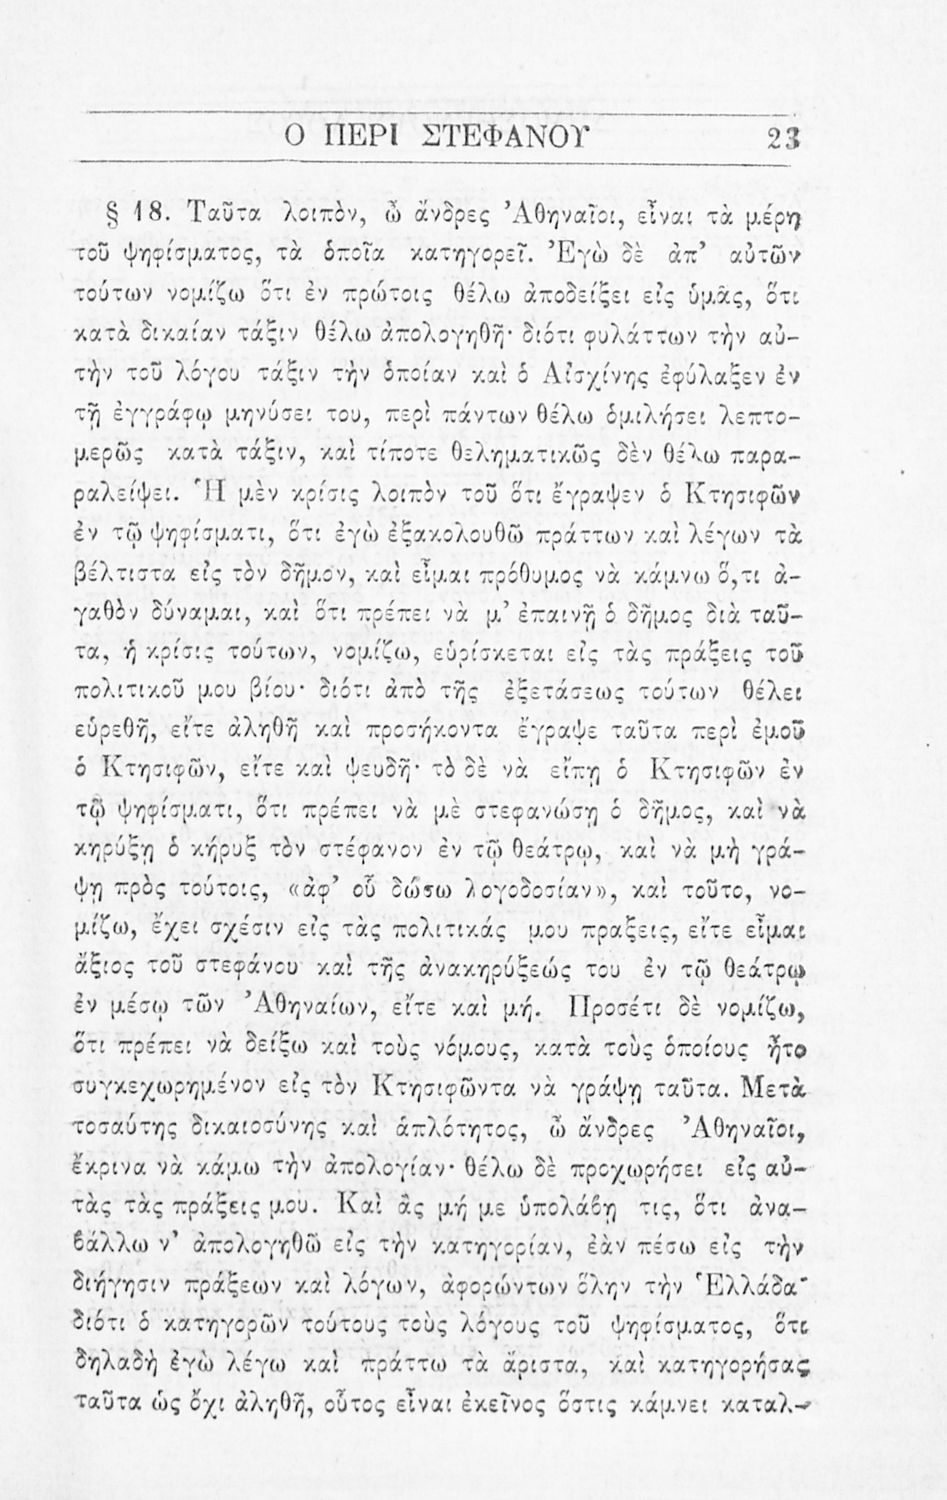 Ο ΠΕΡΙ ΣΤΕΦΑΝΟΥ 23
§ 18. Ταῦτα λοιπὸν, ὦ ἄνδρες Ἀθηναῖοι, εἶναι τὰ μέρη
τοῦ ψηφίσματος, τὰ ὁποῖα κατηγορεῖ. Ἐγὼ δὲ ἀπ’ αὐτῶν
τούτων νομίζω ὅτι ἐν πρώτοις θέλω ἀποδείξει εἰς ὑμᾶς, ὅτι
κατὰ δικαίαν τάξιν θέλω ἀπολογηθῆ· διότι φυλάττων τὴν αὐ-
τὴν τοῦ λόγου τάξιν τὴν ὁποίαν καὶ ὁ Αἰσχίνης ἐφύλαξεν ἐν
τῇ ἐγγράφῳ μηνύσει του, περὶ πάντων θέλω ὁμιλήσει λεπτο-
μερῶς κατὰ τάξιν, καὶ τίποτε θεληματικῶς δὲν θέλω παρα-
ραλείψει. Ἡ μὲν κρίσις λοιπὸν τοῦ ὅτι ἔγραψεν ὁ Κτησιφῶν
ἐν τῷ ψηφίσματι, ὅτι ἐγὼ ἐξακολουθῶ πράττων καὶ λέγων τὰ
βέλτιστα εἰς τὸν δῆμον, καὶ εἶμαι πρόθυμος νὰ κάμνω ὅ,τι ἀ-
γαθὸν δύναμαι, καὶ ὅτι πρέπει νὰ μ’ ἐπαινῇ ὁ δῆμος διὰ ταῦ-
τα, ἡ κρίσις τούτων, νομίζω, εὑρίσκεται εἰς τὰς πράξεις τοῦ
πολιτικοῦ μου βίου· διότι ἀπὸ τῆς ἐξετάσεως τούτων θέλει
εὑρεθῆ, εἴτε ἀληθῆ καὶ προσήκοντα ἔγραψε ταῦτα περὶ ἐμοῦ
ὁ Κτησιφῶν, εἴτε καὶ ψευδῆ· τὸ δὲ νὰ εἴπῃ ὁ Κτησιφῶν ἐν
τῷ ψηφίσματι, ὅτι πρέπει νὰ μὲ στεφανώσῃ ὁ δῆμος, καὶ νὰ
κηρύξῃ ὁ κήρυξ τὸν στέφανον ἐν τῷ θεάτρῳ, καὶ νὰ μὴ γρά-
ψῃ πρὸς τούτοις, «ἀφ’ οὗ δώσω λογοδοσίαν», καὶ τοῦτο, νο-
μίζω, ἔχει σχέσιν εἰς τὰς πολιτικάς μου πραξεις, εἴτε εἶμαι
ἄξιος τοῦ στεφάνου καὶ τῆς ἀνακηρύξεώς του ἐν τῷ θεάτρῳ
ἐν μέσῳ τῶν Ἀθηναίων, εἴτε καὶ μή. Προσέτι δὲ νομίζω,
ὅτι πρέπει νὰ δείξω καὶ τοὺς νόμους, κατὰ τοὺς ὁποίους ἦτο
συγκεχωρημένον εἰς τὸν Κτησιφῶντα νὰ γράψῃ ταῦτα. Μετὰ
τοσαύτης δικαιοσύνης καὶ ἁπλότητος, ὦ ἄνδρες Ἀθηναῖοι,
ἔκρινα νὰ κάμω τὴν ἀπολογίαν· θέλω δὲ προχωρήσει εἰς αὐ-
τὰς τὰς πράξεις μου. Καὶ ἂς μή με ὑπολάβῃ τις, ὅτι ἀνα-
βάλλω ν’ ἀπολογηθῶ εἰς τὴν κατηγορίαν, ἐὰν πέσω εἰς τὴν
διήγησιν πράξεων καὶ λόγων, ἀφορώντων ὅλην τὴν Ἑλλάδα·
διότι ὁ κατηγορῶν τούτους τοὺς λόγους τοῦ ψηφίσματος, ὅτι
δηλαδὴ ἐγὼ λέγω καὶ πράττω τὰ ἄριστα, καὶ κατηγορήσας
ταῦτα ὡς ὄχι ἀληθῆ, οὗτος εἶναι ἐκεῖνος ὅστις κάμνει καταλ-